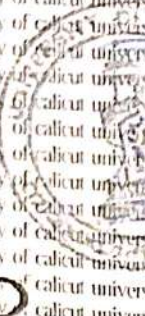 of calicut univers
y of calicut univers
of calicut univers
of calicut univer
of calicut univer
of calicut univer
of calicut univer
y of calicut univer
y of calicut univer
y of calicut univer
y of calicut univer
y of calicut univer
of calicut univer
calicut univer